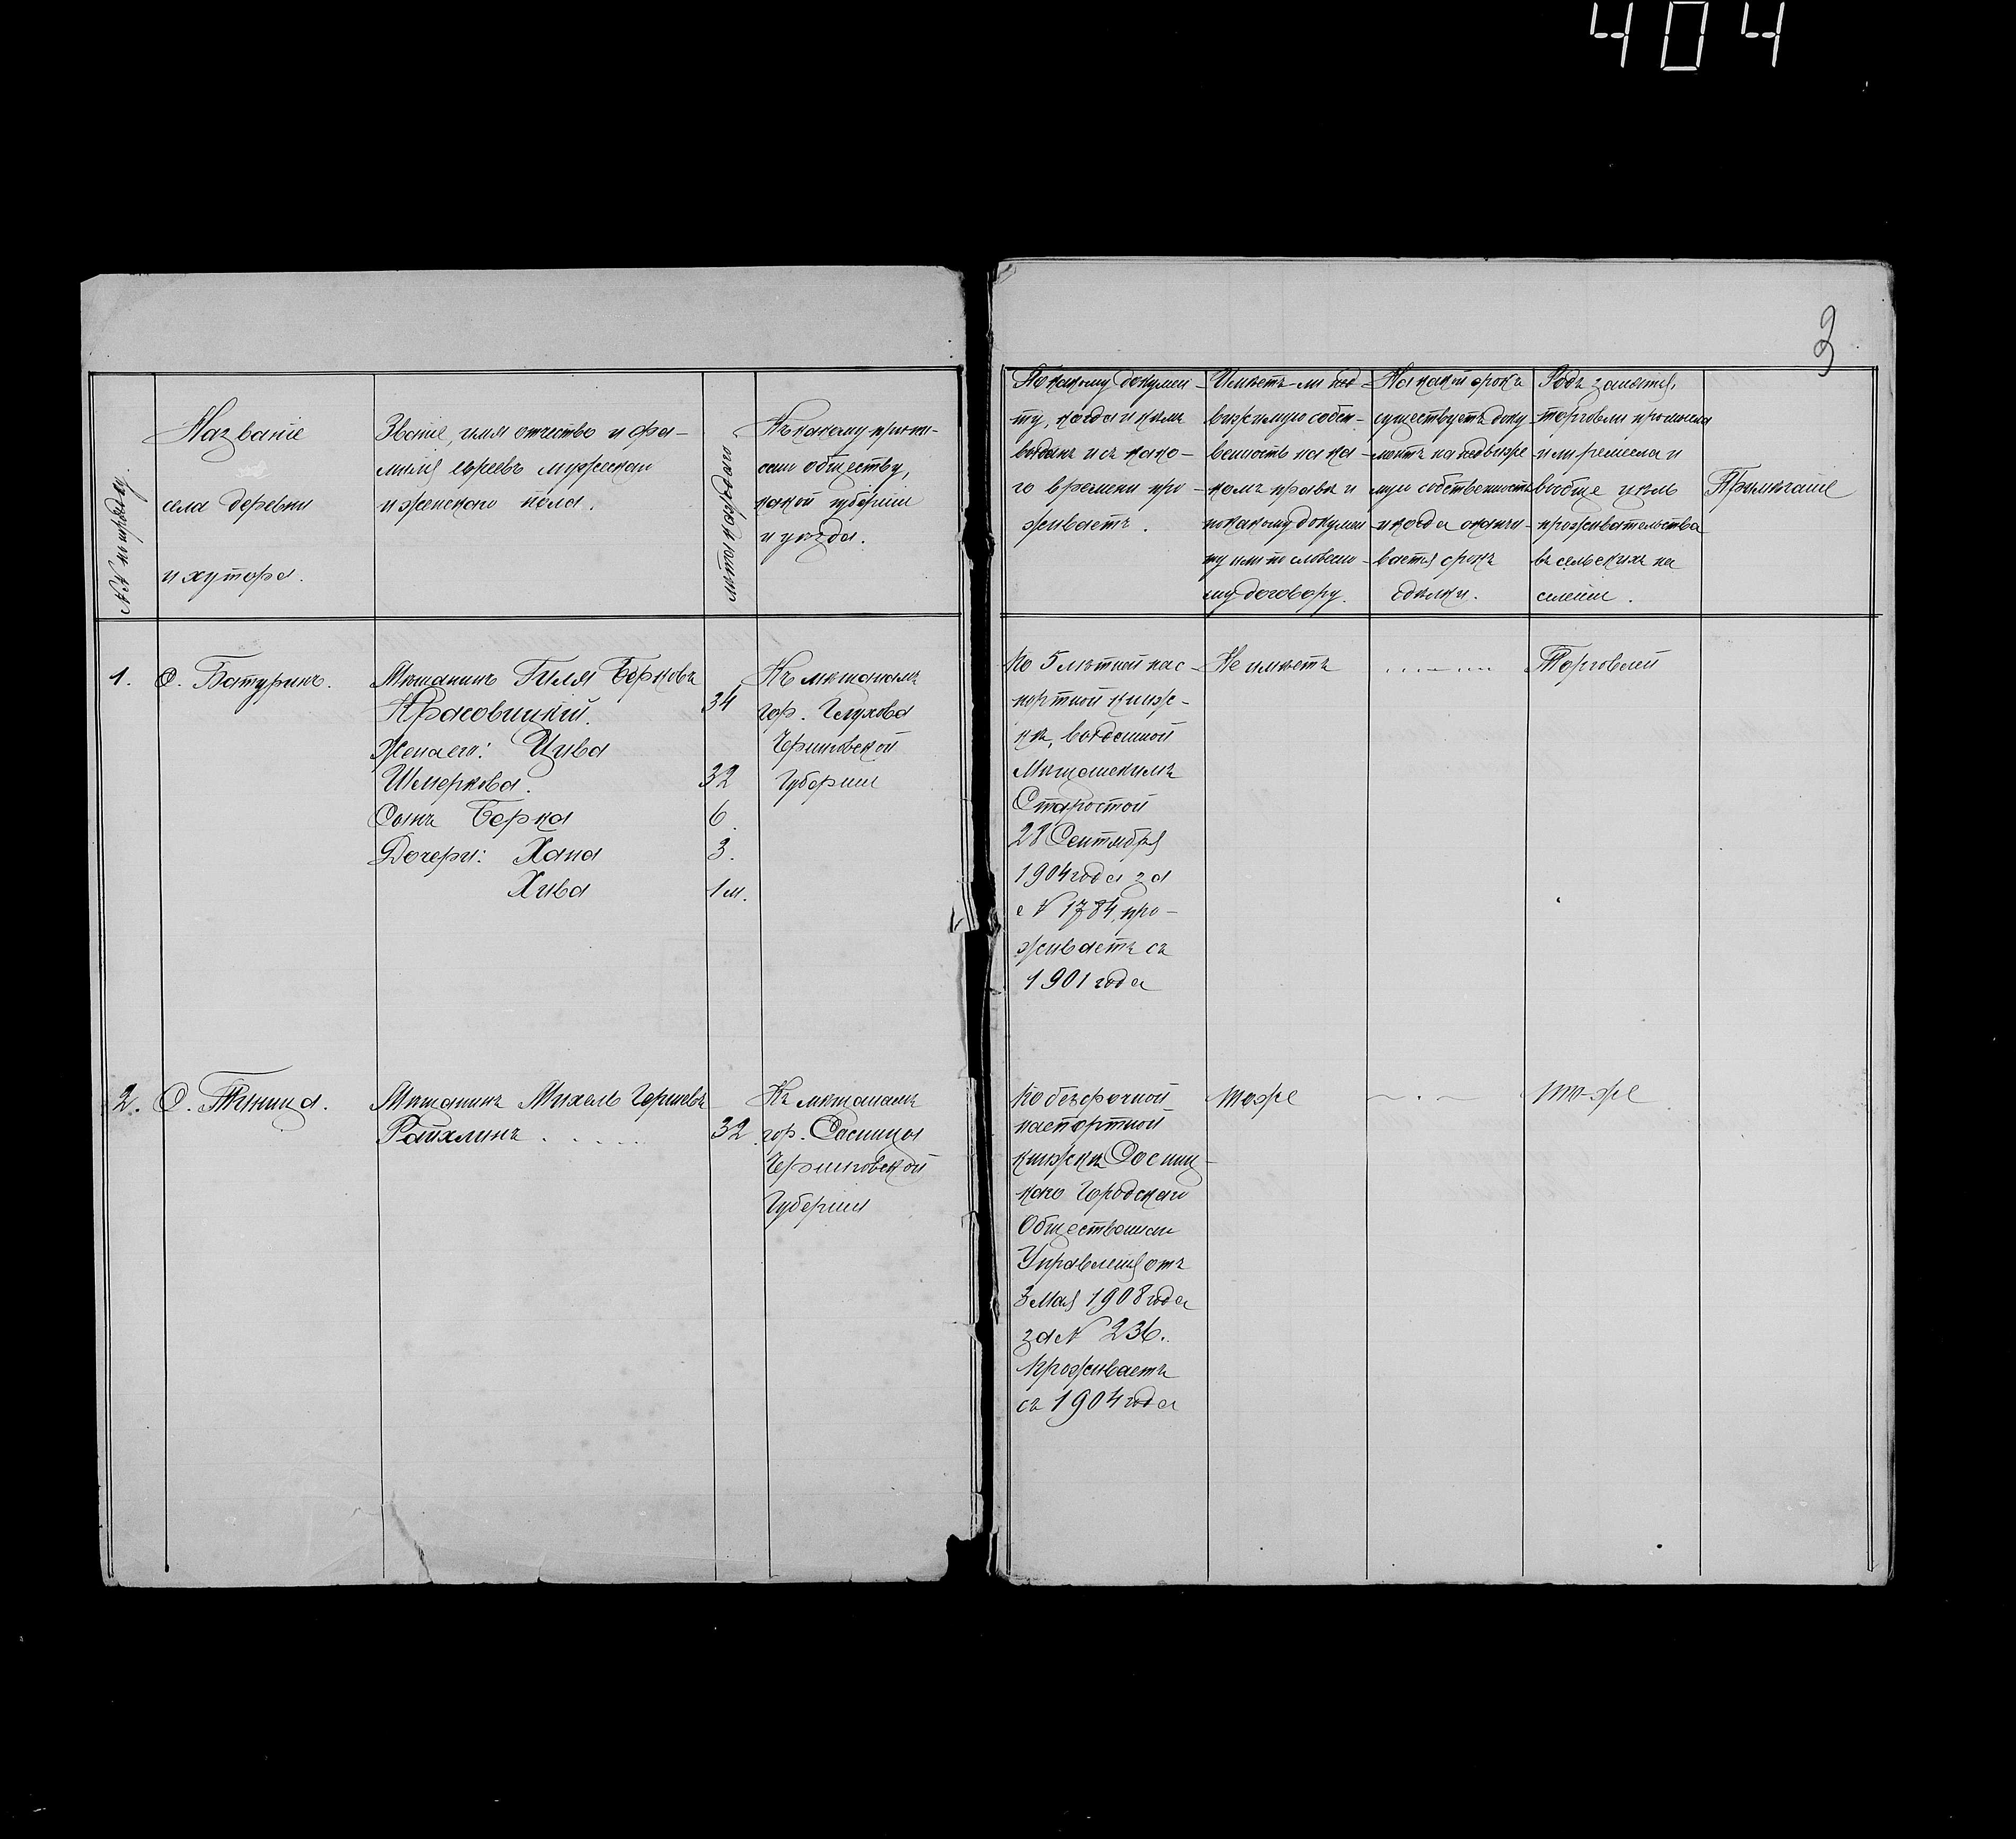 404
3
№№ по порядку.
Названіе
села деревни
и хутора.
Званіе, имя отчество и фа-
милія евреевъ мужскаго
и женскаго пола.
лѣта каждаго.
Къ какому припи-
санъ обществу,
какой губерніи
и уѣзда.
По какому докумен-
ту, когда и кѣмъ
выданъ и съ како-
го времени про-
живаетъ.
Имѣетъ ли нед-
вижимую собст-
венность на ка-
комъ правѣ и
по какому докумен
ту или по словесно-
му договору.
На какой срокъ
существуетъ доку-
ментъ на недвижи
мую собственность
и когда оканчи-
вается срокъ
сдѣлки.
Родъ занятія,
торговли промысла
или ремесла и
вообще цѣль
проживательства
въ сельскихъ на
селеніи.
Примѣчаніе
1.
С. Батуринъ.
Мѣщанинъ Гиля Берковъ
Красовицкій.
34
Жена его: Цива
Шмеркова.
32
Сынъ Берка
6.
Дочери: Хана
3.
Хива
1 м.
Къ мѣщанамъ
гор. Глухова
Черниговской
Губерніи
По 5 лѣтной пас-
портной книж-
кѣ, выданной
Мѣщанскимъ
Старостой
28 Сентября
1904 года за
№ 1784, про-
живаетъ съ
1901 года
Не имѣетъ
Торговлей
2.
С. Тиница.
Мѣщанинъ Михель Гершевъ
Райхлинъ
32
Къ мѣщанамъ
гор. Сосницы
Черниговской
Губерніи
По безсрочной
паспортной
книжкѣ Сосниц-
каго Городскаго
Общественнаго
Управленія отъ
3 Мая 1908 года
за № 236.
Проживаетъ
съ 1904 года
тоже
то-же